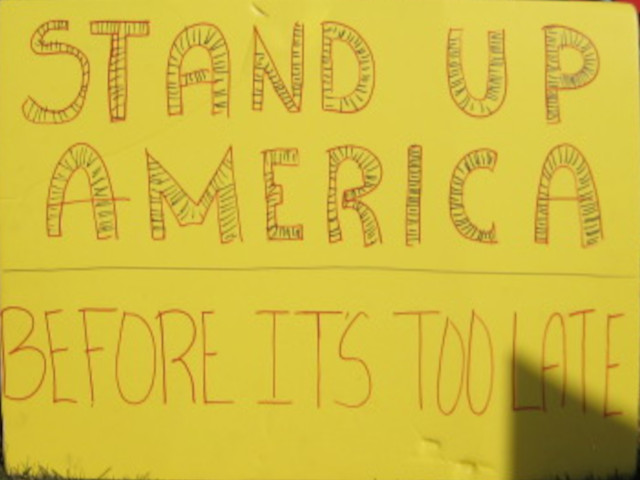 STAND UP
AMERICA
BEFORE IT'S TOO LATE